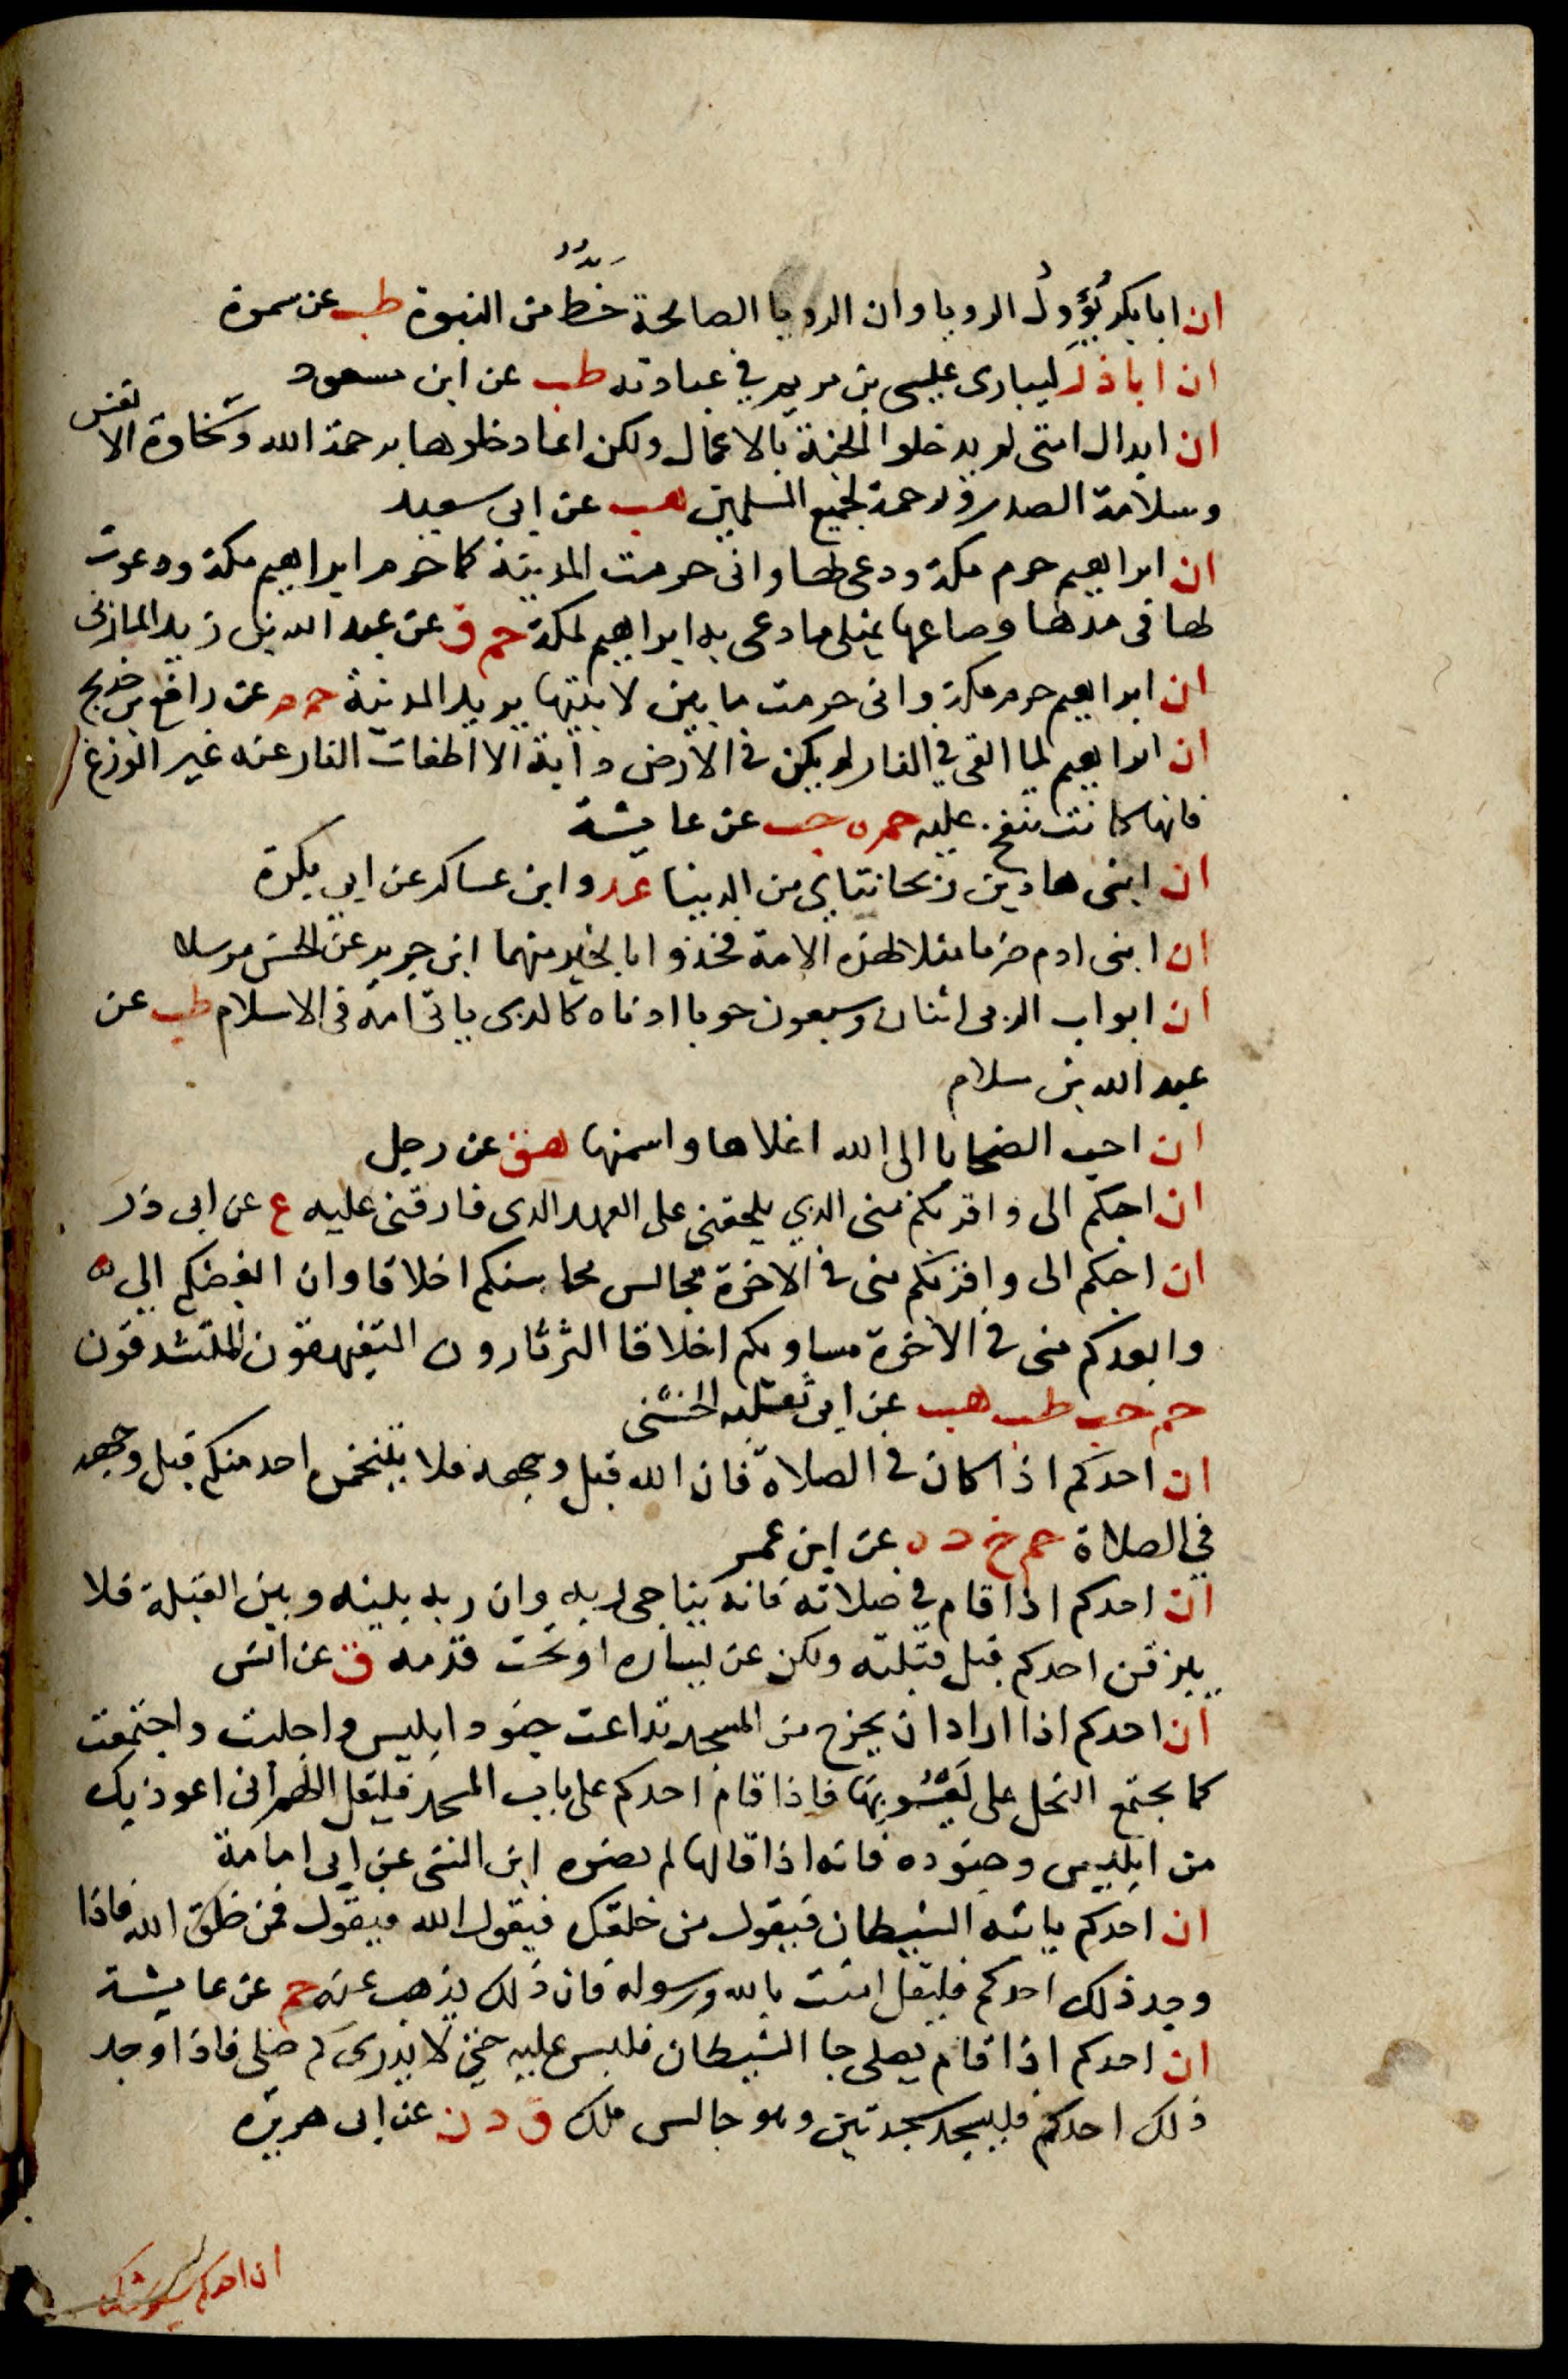 ان ابا بكر يُؤَوِلُ الرويا وان الرويا الصالحة حَظٌّ من النبوة طب عن سمرة
ان ابا ذر ليبارى عليسى بن مريم في عبادته طب عن ابن مسعود
ان ابدال امتى لم يدخلوا الجنة بالاعمال ولكن انما دخلوها برحمة الله وسخاوة الانفس
وسلامة الصدر ورحمة لجميع المسلمين هب عن ابى سعيد
ان ابراهيم حرم مكة ودعى لها وانى حرمت المدينة كما حرم ابراهيم مكة ودعوت
لها فى مدها وصاعها بمثلى ما دعى به ابراهيم لمكة حم ق عن عبد الله بن زيد المازنى
ان ابراهيم حرم مكة وانى حرمت ما بين لابتيها يريد المدينة حم م عن رافع بن خديج
ان ابراهيم لما القى في النار لم يكن في الارض دابة الا اطفات النار عنه غير الوزغ
فانها كانت تنفخ عليه حم ه حب عن عايشة
ان ابنى هاذين ريحانتاى من الدينا عد وابن عساكر عن ابى بكرة
ان ابنى ادم ضربا مثلا لهذه الامة فخذوا بالخير منهما ابن جرير عن الحسن مرسلا
ان ابواب الربى اثنان وسبعون حوبا ادناه كالذى ياتى امه فى الاسلام طب عن
عبد الله بن سلام
ان احب الضحايا الى الله اغلاها واسمنها هق عن رجل
ان احبكم الى واقربكم منى الذي يلحقنى على العهد الذى فارقنى عليه ع عن ابى ذر
ان احبكم الى واقربكم منى في الاخرة مجالس محاسنكم اخلاقا وان ابغضكم الى
وابعدكم منى في الاخرة مساويكم اخلاقا الثرثارون المتفيهقون المتشدقون
حم حب طب هب عن ابى ثعلبه الخشنى
ان احدكم اذا كان في الصلاة فان الله قبل وجهه فلا يتنخمن احد منكم قبل وجهه
في الصلاة حم خ د ه عن ابن عمر
ان احدكم اذا قام في صلاته فانه يناجى ربه وان ربه بينه وبين القبلة فلا
يبزقن احدكم قبل قبلته ولكن عن يساره او تحت قدمه ق عن انس
ان احدكم اذا اراد ان يخرج من المسجد تداعت جنود ابليس واجلبت واجتمعت
كما يجتمع النحل على يَعْسُوبِهَا فاذا قام احدكم على باب المسجد فليقل اللهم انى اعوذ بك
من ابليس وجنوده فانه اذا قالها لم تضره ابن السنى عن ابى امامة
ان احدكم ياتيه الشيطان فيقول من خلقك فيقول الله فيقول فمن خلق الله فاذا
وجد ذلك احدكم فليقل امنت بالله ورسوله فان ذلك يذهب عنه حم عن عايشة
ان احدكم اذا قام يصلى جا الشيطان فلبس عليه حتى لا يدرى كم صلى فاذا وجد
ذلك احدكم فليسجد سجدتين وهو جالس ملك ق د ن عن ابى هريرة
ان احدكم